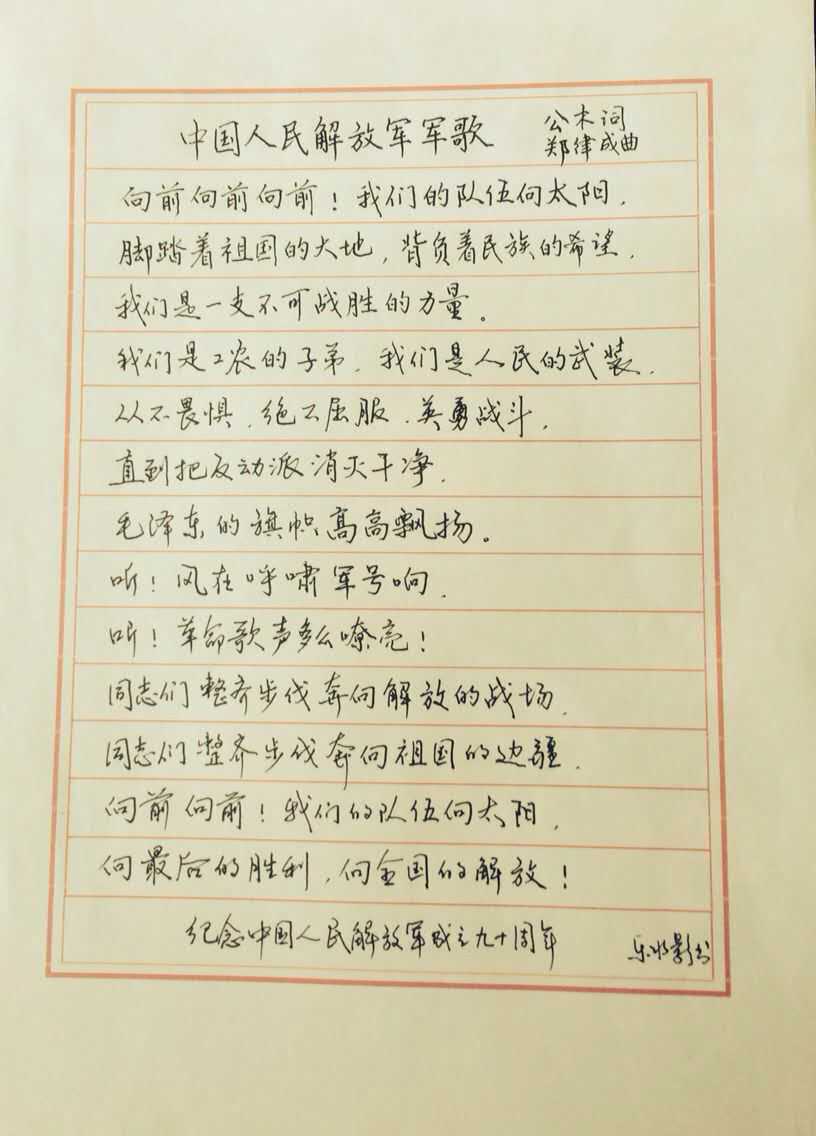 中国人民解放军军歌
公木词
郑律成曲
向前向前向前！我们的队伍向太阳，
脚踏着祖国的大地，背负着民族的希望，
我们是一支不可战胜的力量。
我们是工农的子弟，我们是人民的武装，
从不畏惧，绝不屈服，英勇战斗，
直到把反动派消灭干净，
毛泽东的旗帜高高飘扬。
听！风在呼啸军号响，
听！革命歌声多么嘹亮！
同志们整齐步伐奔向解放的战场，
同志们整齐步伐奔向祖国的边疆，
向前向前！我们的队伍向太阳，
向最后的胜利，向全国的解放！
纪念中国人民解放军成立九十周年
乐水影书